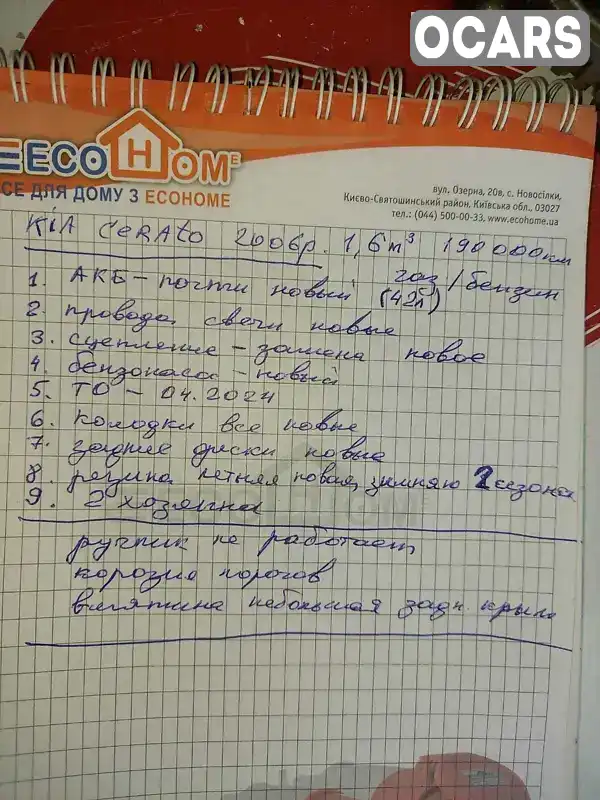 OCARS
ECOHOME
СЕ ДЛЯ ДОМУ З ECONOME
вул. Озерна, 20в, с. Новосілки,
Києво-Святошинський район, Київська обл., 03027
тел.: (044) 500-00-33, www.ecohome.ua
KiA CeRAto 2006р. 1,6 m³ 190 000км
газ/бензин
1. АКБ – почти новый (42л)
2. провода, свечи новые
3. сцепление – замена новое
4. бензонасос – новый
5. ТО – 04.2024
6. колодки все новые
7. задние диски новые
8. резина летняя новая, зимняю 2 сезона
9. 2 хозяина
ручник не работает
корозия порогов
вмятина небольшая задн. крыло